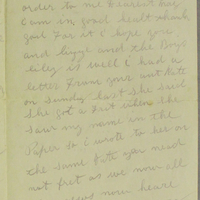 order to me Dearest may
I am in good health thank
god for it i hope you
and lizzie and the Boys
is well i had a
letter from your ant Kate
on Sunday last she said
she got a fit when she
saw my name in the
Paper so i wrote to her on
the same date you need
not fret as we now all
now heare